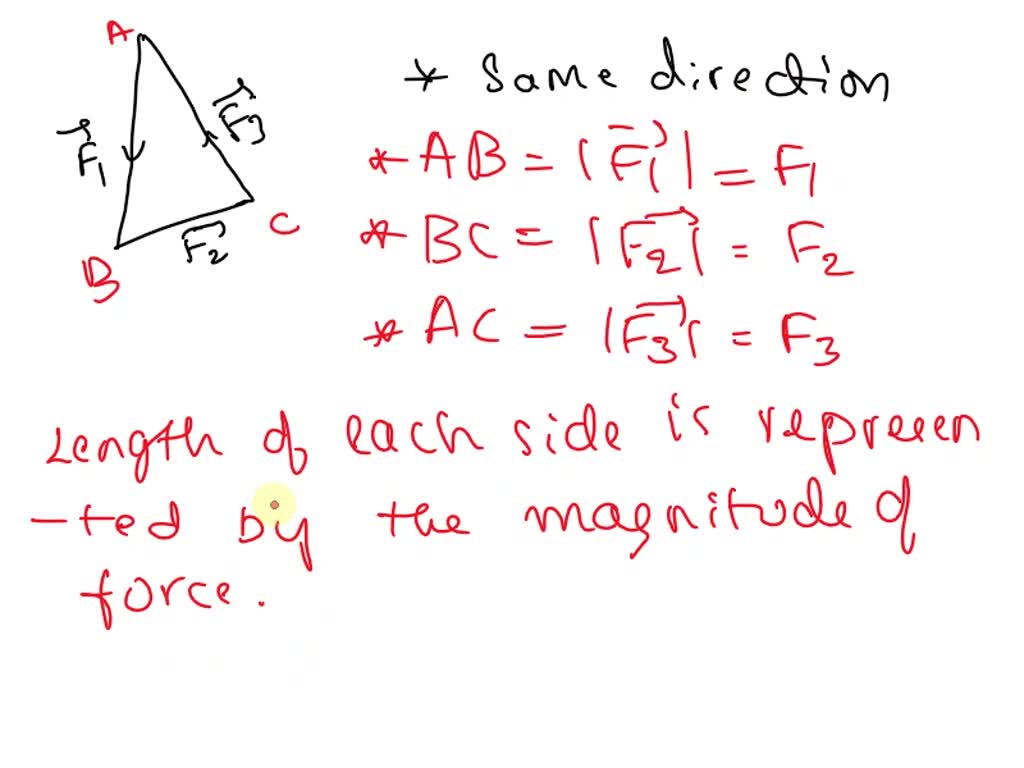 A
F₁
F₃
B
F₂
C
* Same direction
* AB = |F₁| = F₁
* BC = |F₂| = F₂
* AC = |F₃| = F₃
Length of each side is represen
-ted by the magnitude of
force.